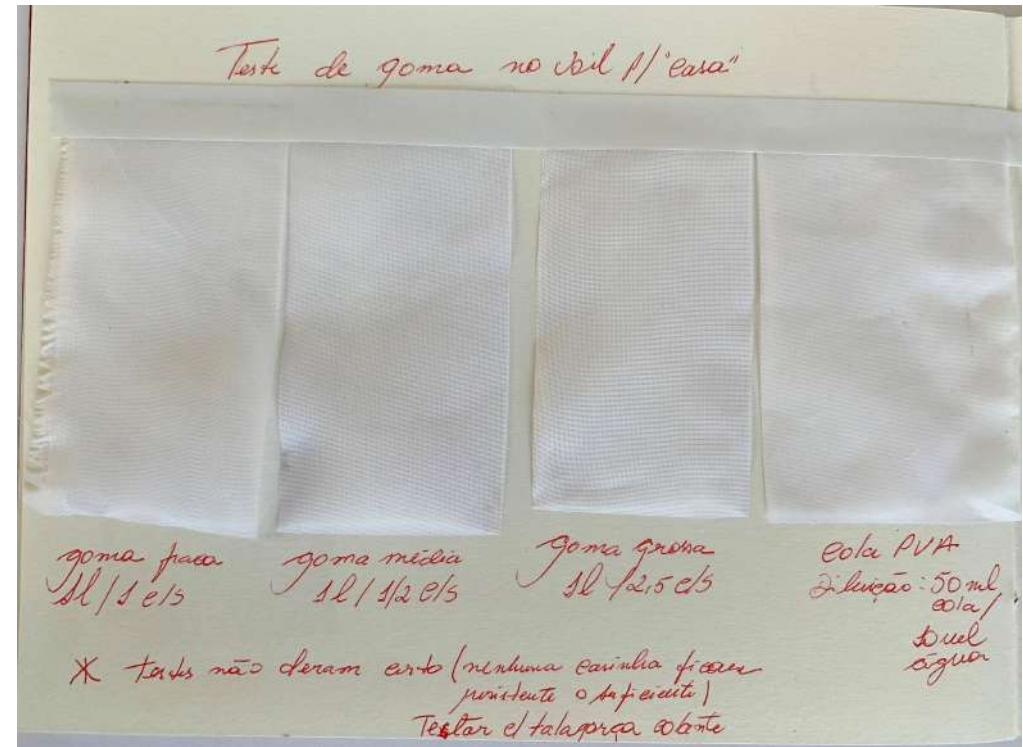 Teste de goma no voil p/ "casa"
goma fraca
1l/1 c/s
goma média
1l/1/2 c/s
goma grossa
1l/2,5 c/s
cola PVA
Diluição: 50 ml
cola/
água
* testes não deram certo (nenhuma casinha ficou
resistente o suficiente)
Testar c/ talagarça colante